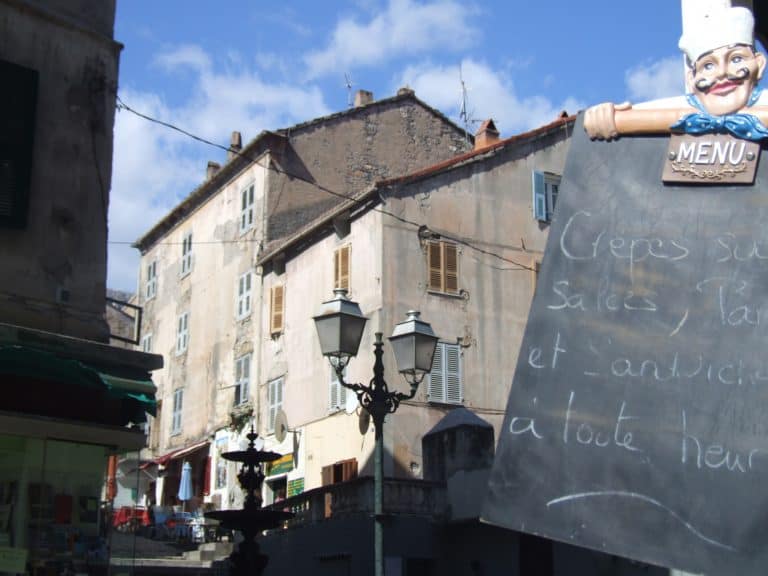 MENU
Crêpes
salées,
et Sandwich
à toute heur